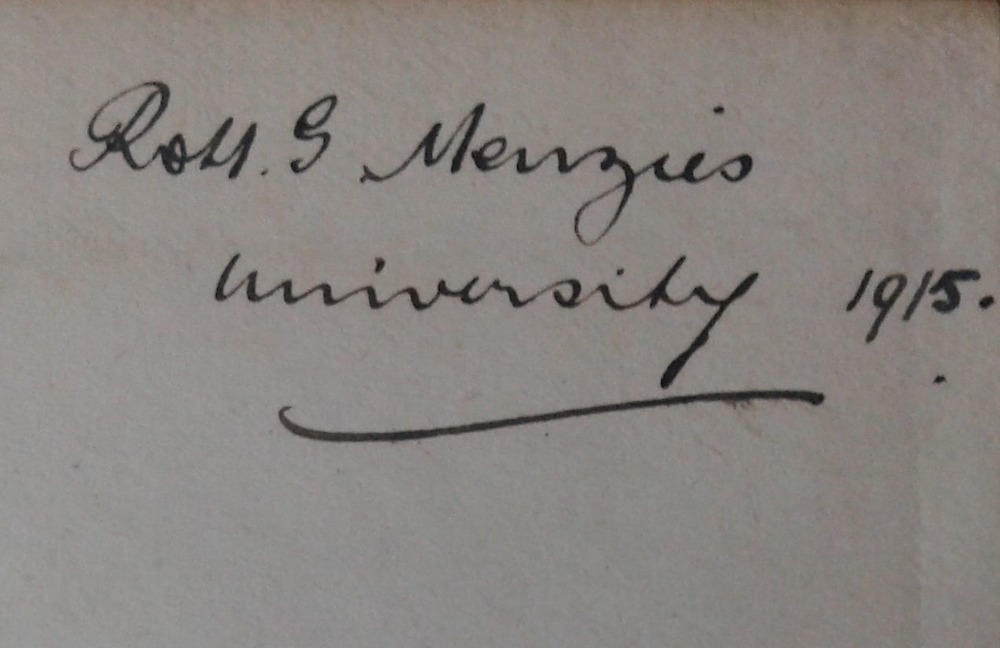 Robt. G Menzies
University 1915.